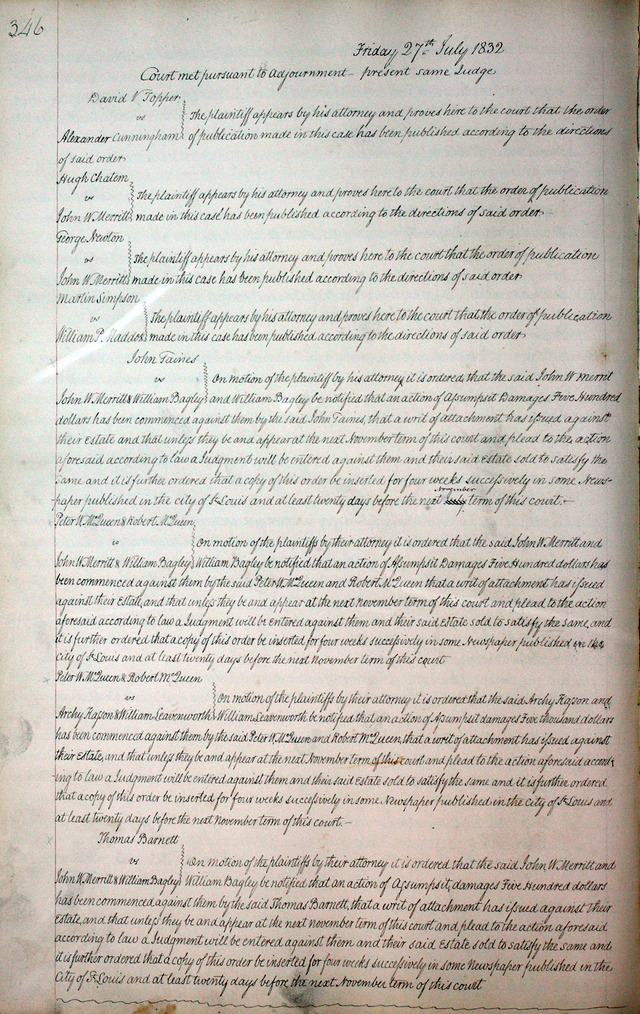 346
Friday 27th July 1832
Court met pursuant to Adjournment present same Judge
David V Topper
vs the plaintiff appears by his attorney and proves here to the court that the order
Alexander Cunningham of publication made in this case has been published according to the directions
of said order
Hugh Chalem
vs the plaintiff appears by his attorney and proves here to the court that the order of publication
John W. Merritt made in this case has been published according to the directions of said order
George Newton
vs the plaintiff appears by his attorney and proves here to the court that the order of publication
John W. Merritt made in this case has been published according to the directions of said order
Martin Simpson
vs the plaintiff appears by his attorney and proves here to the court that the order of publication
William P. Maddox made in this case has been published according to the directions of said order
John Taines
vs On motion of the plaintiff by his attorney it is ordered, that the said John W Merrit
John W. Merritt & William Bagley and William Bagley be notified that an action of Assumpsit Damages Five Hundred
dollars has been commenced against them by the said John Taines, that a writ of attachment has issued against
their Estate and that unless they be and appear at the next November term of this court and plead to the action
aforesaid according to law a Judgment will be entered against them and their said Estate sold to satisfy the
same and it is further ordered that a copy of this order be inserted for four weeks successively in some News-
paper published in the city of St Louis and at least twenty days before the next November term of this court.-
Peter W. McQueen & Robert McQueen
vs On motion of the plaintiffs by their attorney it is ordered that the said John W. Merritt and
John W. Merritt & William Bagley William Bagley be notified that an action of Assumpsit Damages Five Hundred dollars has
been commenced against them by the said Peter W. McQueen and Robert McQueen that a writ of attachment has issued
against their Estate, and that unless they be and appear at the next November term of this court and plead to the action
aforesaid according to law a Judgment will be entered against them and their said Estate sold to satisfy the same, and
it is further ordered that a copy of this order be inserted for four weeks successively in some Newspaper published in the
City of St Louis and at least twenty days before the next November term of this court
Peter W. McQueen & Robert McQueen
vs On motion of the plaintiffs by their attorney it is ordered that the said Archy Kasson and
Archy Kasson & William Leavenworth William Leavenworth be notified that an action of Assumpsit damages Five thousand dollars
has been commenced against them by the said Peter W. McQueen and Robert McQueen, that a writ of attachment has issued against
their Estate, and that unless they be and appear at the next November term of this court and plead to the action aforesaid accord
ing to law a Judgment will be entered against them and their said Estate sold to satisfy the same and it is further ordered
that a copy of this order be inserted for four weeks successively in some Newspaper published in the city of St Louis and
at least twenty days before the next November term of this court.-
Thomas Barnett
vs On motion of the plaintiffs by their attorney it is ordered that the said John W. Merritt and
John W. Merritt & William Bagley William Bagley be notified that an action of Assumpsit, damages Five Hundred dollars
has been commenced against them by the said Thomas Barnett, that a writ of attachment has issued against their
Estate, and that unless they be and appear at the next November term of this court and plead to the action aforesaid
according to law a Judgment will be entered against them and their said Estate sold to satisfy the same and
it is further ordered that a copy of this order be inserted for four weeks successively in some Newspaper published in the
City of St Louis and at least twenty days before the next November term of this court